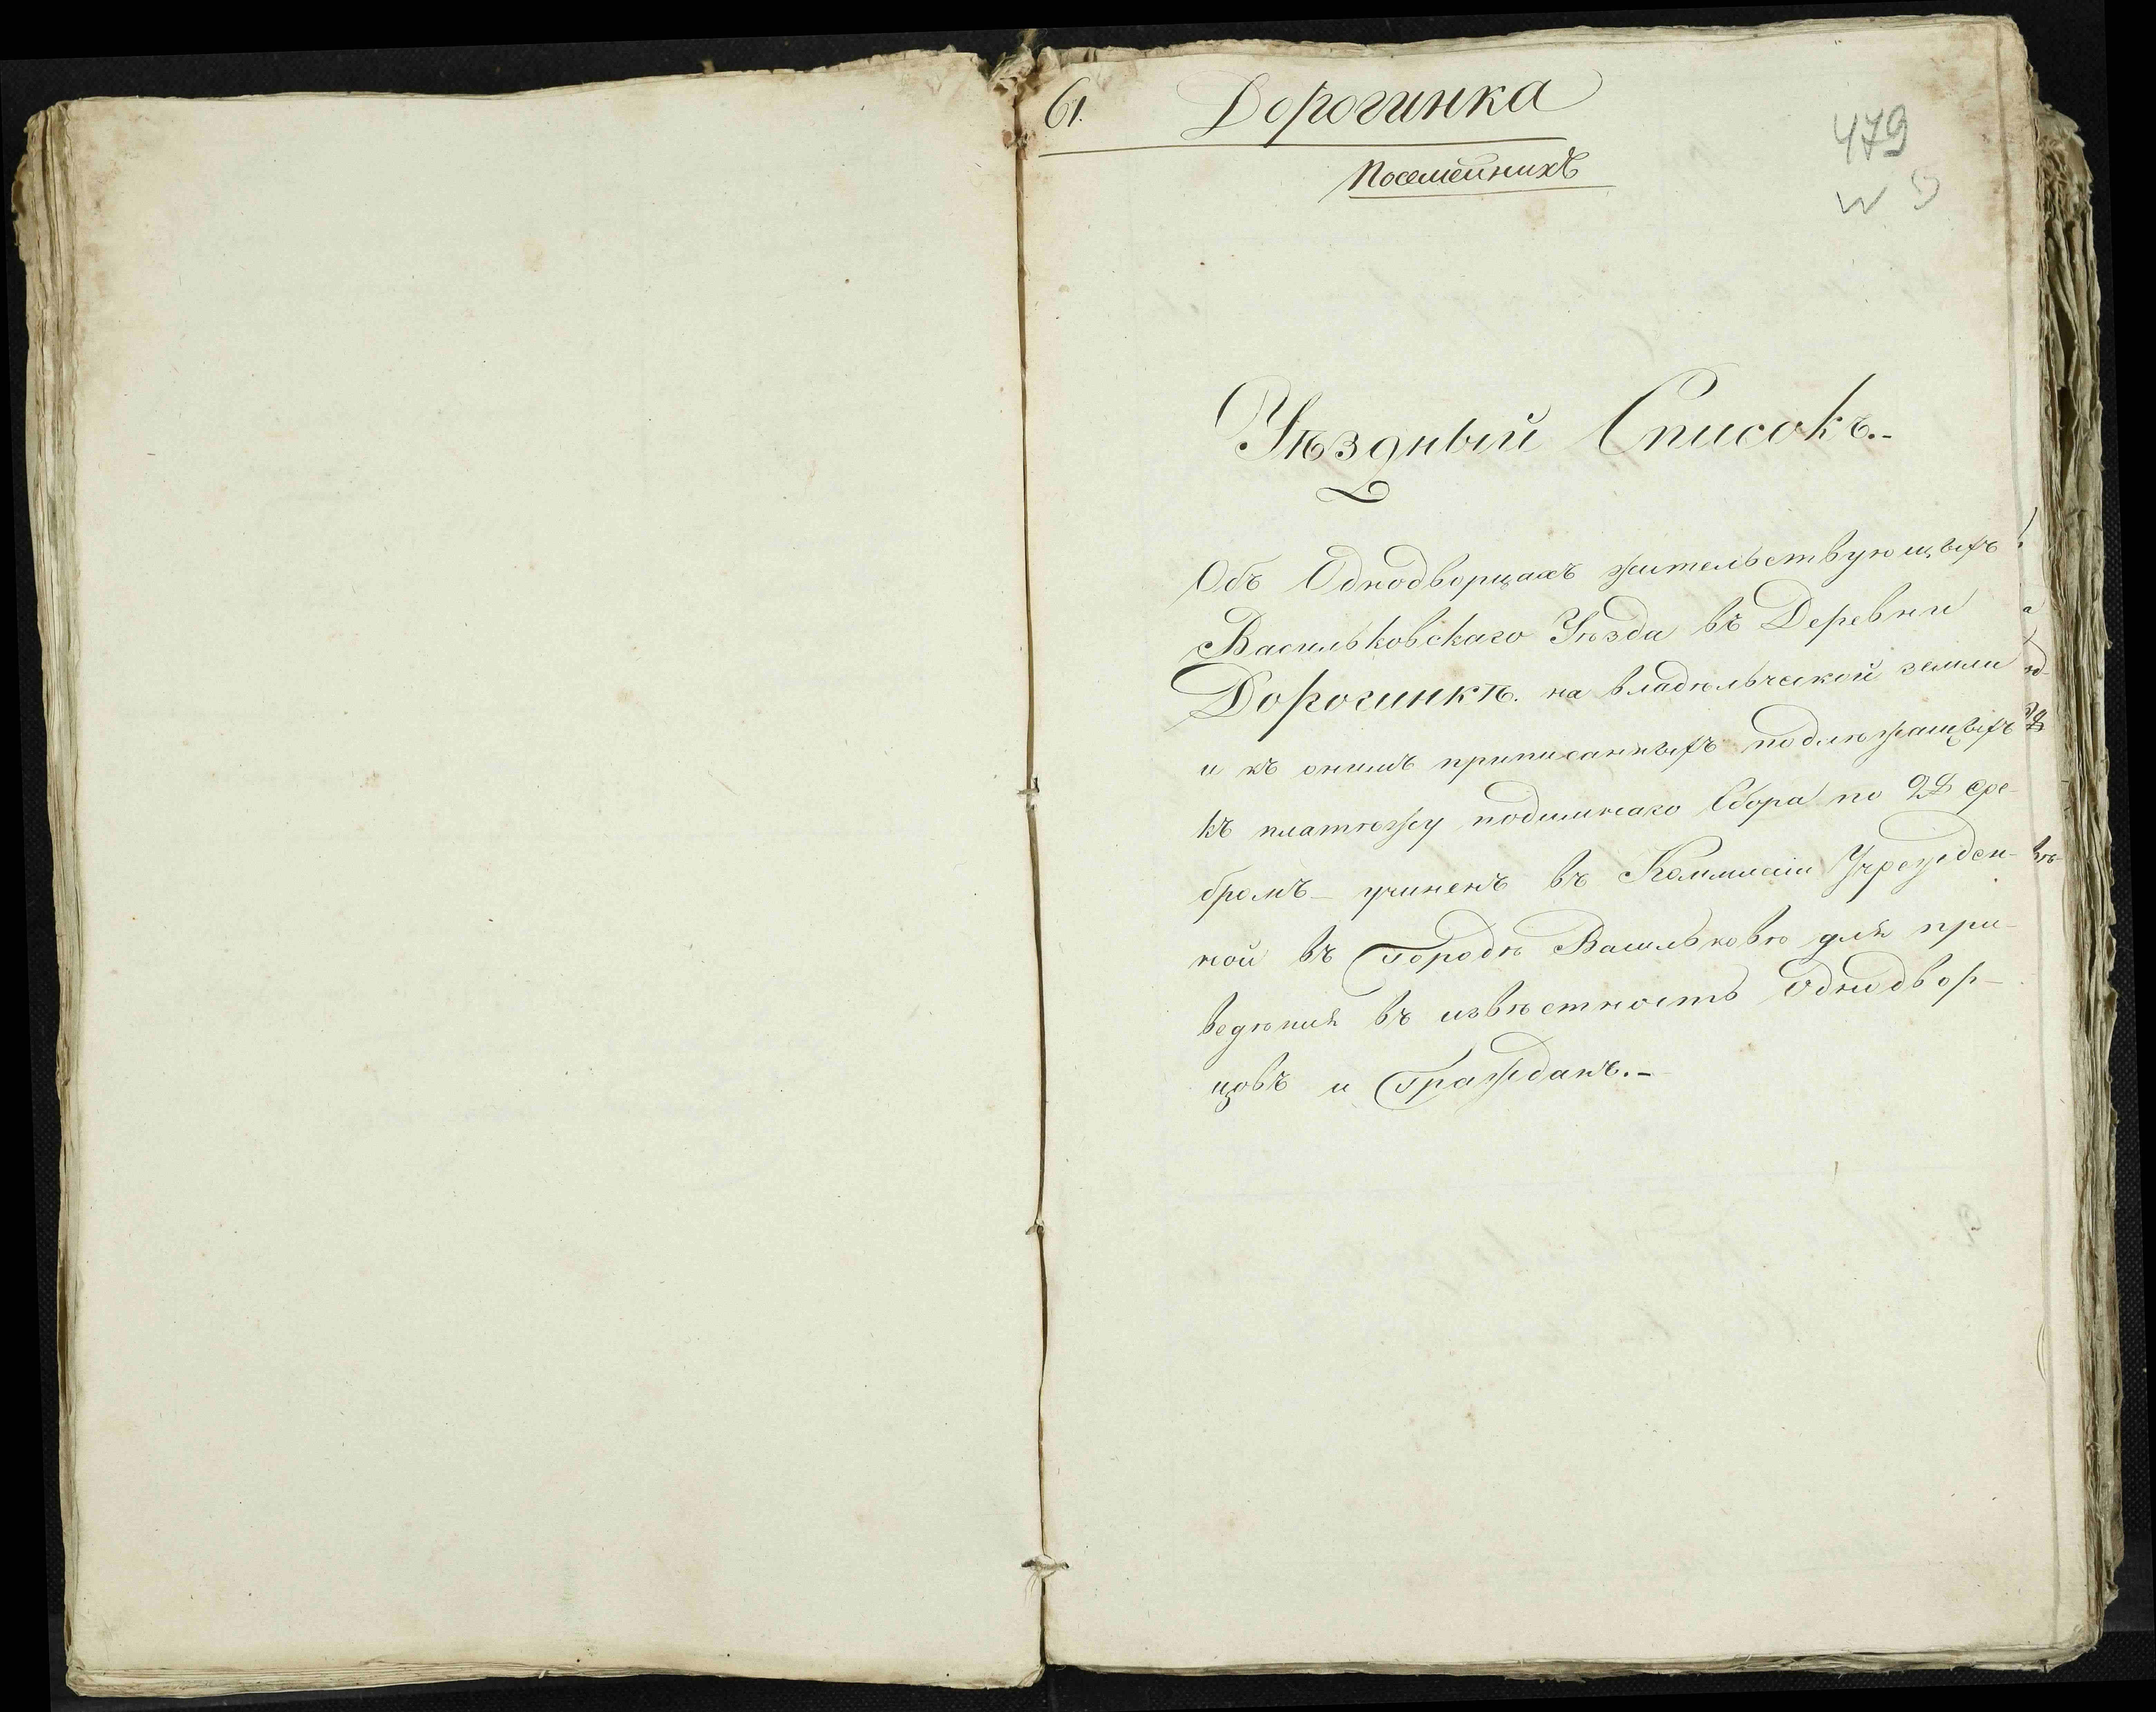 61. Дорогинка
479
Уѣздный Списокъ.-
Объ Однодворцахъ жительствующихъ
Васильковскаго Уѣзда въ Деревни
Дорогинкѣ. на владѣльческой земли
и къ онимъ приписанныхъ подлѣжащыхъ
къ платѣжу подимнаго Сбора по 2 Сре-
бромъ - учиненъ въ Коммисіи Учрежден-
ной въ Городѣ Васильковѣ для при-
ведѣния въ извѣстность Однодвор-
цовъ и Гражданъ.-